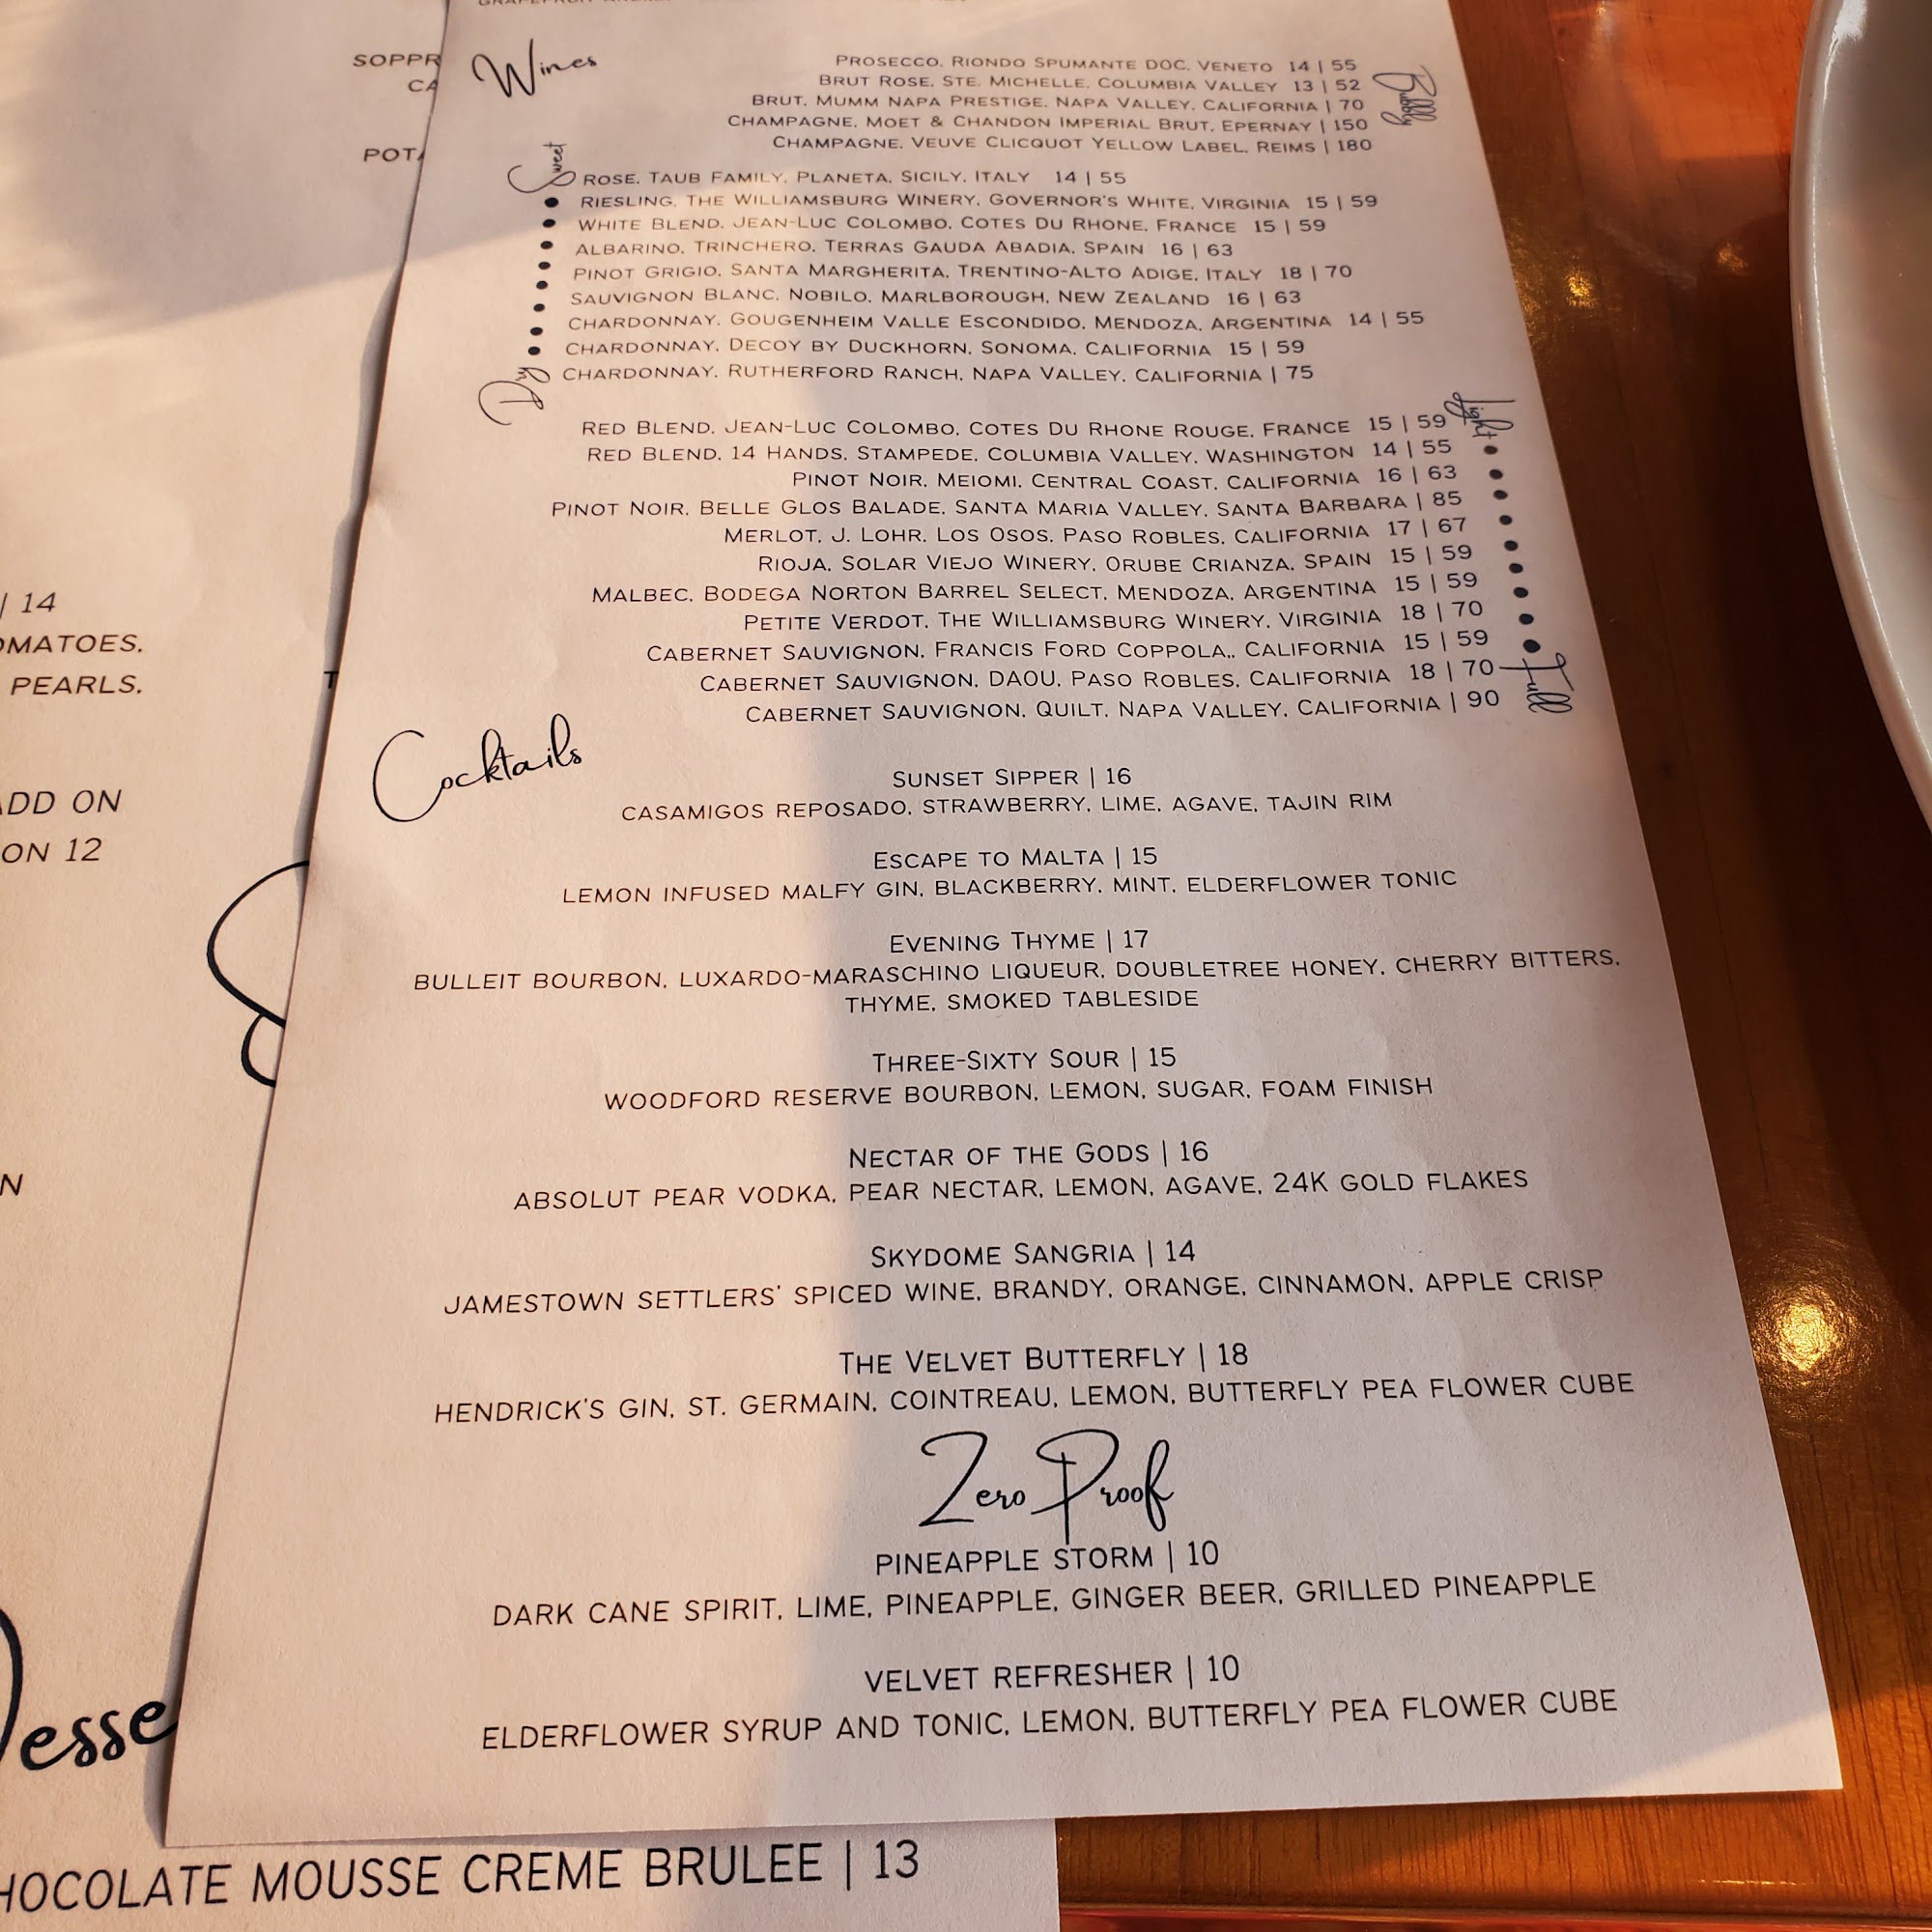 SOPPR
CA
POTA
| 14
OMATOES,
PEARLS,
ADD ON
ON 12
N
Desse
HOCOLATE MOUSSE CREME BRULEE | 13
Wines
PROSECCO, RIONDO SPUMANTE DOC, VENETO 14 | 55
BRUT ROSE, STE. MICHELLE, COLUMBIA VALLEY 13 | 52
BRUT, MUMM NAPA PRESTIGE, NAPA VALLEY, CALIFORNIA | 70
CHAMPAGNE, MOET & CHANDON IMPERIAL BRUT, EPERNAY | 150
CHAMPAGNE, VEUVE CLICQUOT YELLOW LABEL, REIMS | 180
Bubbly
Sweet
ROSE, TAUB FAMILY, PLANETA, SICILY, ITALY 14 | 55
RIESLING, THE WILLIAMSBURG WINERY, GOVERNOR'S WHITE, VIRGINIA 15 | 59
WHITE BLEND, JEAN-LUC COLOMBO, COTES DU RHONE, FRANCE 15 | 59
ALBARINO, TRINCHERO, TERRAS GAUDA ABADIA, SPAIN 16 | 63
PINOT GRIGIO, SANTA MARGHERITA, TRENTINO-ALTO ADIGE, ITALY 18 | 70
SAUVIGNON BLANC, NOBILO, MARLBOROUGH, NEW ZEALAND 16 | 63
CHARDONNAY, GOUGENHEIM VALLE ESCONDIDO, MENDOZA, ARGENTINA 14 | 55
CHARDONNAY, DECOY BY DUCKHORN, SONOMA, CALIFORNIA 15 | 59
CHARDONNAY, RUTHERFORD RANCH, NAPA VALLEY, CALIFORNIA | 75
Dry
Light
RED BLEND, JEAN-LUC COLOMBO, COTES DU RHONE ROUGE, FRANCE 15 | 59
RED BLEND, 14 HANDS, STAMPEDE, COLUMBIA VALLEY, WASHINGTON 14 | 55
PINOT NOIR, MEIOMI, CENTRAL COAST, CALIFORNIA 16 | 63
PINOT NOIR, BELLE GLOS BALADE, SANTA MARIA VALLEY, SANTA BARBARA | 85
MERLOT, J. LOHR, LOS OSOS, PASO ROBLES, CALIFORNIA 17 | 67
RIOJA, SOLAR VIEJO WINERY, ORUBE CRIANZA, SPAIN 15 | 59
MALBEC, BODEGA NORTON BARREL SELECT, MENDOZA, ARGENTINA 15 | 59
PETITE VERDOT, THE WILLIAMSBURG WINERY, VIRGINIA 18 | 70
CABERNET SAUVIGNON, FRANCIS FORD COPPOLA,, CALIFORNIA 15 | 59
CABERNET SAUVIGNON, DAOU, PASO ROBLES, CALIFORNIA 18 | 70
CABERNET SAUVIGNON, QUILT, NAPA VALLEY, CALIFORNIA | 90
Full
Cocktails
SUNSET SIPPER | 16
CASAMIGOS REPOSADO, STRAWBERRY, LIME, AGAVE, TAJIN RIM
ESCAPE TO MALTA | 15
LEMON INFUSED MALFY GIN, BLACKBERRY, MINT, ELDERFLOWER TONIC
EVENING THYME | 17
BULLEIT BOURBON, LUXARDO-MARASCHINO LIQUEUR, DOUBLETREE HONEY, CHERRY BITTERS,
THYME, SMOKED TABLESIDE
THREE-SIXTY SOUR | 15
WOODFORD RESERVE BOURBON, LEMON, SUGAR, FOAM FINISH
NECTAR OF THE GODS | 16
ABSOLUT PEAR VODKA, PEAR NECTAR, LEMON, AGAVE, 24K GOLD FLAKES
SKYDOME SANGRIA | 14
JAMESTOWN SETTLERS' SPICED WINE, BRANDY, ORANGE, CINNAMON, APPLE CRISP
THE VELVET BUTTERFLY | 18
HENDRICK'S GIN, ST. GERMAIN, COINTREAU, LEMON, BUTTERFLY PEA FLOWER CUBE
Zero Proof
PINEAPPLE STORM | 10
DARK CANE SPIRIT, LIME, PINEAPPLE, GINGER BEER, GRILLED PINEAPPLE
VELVET REFRESHER | 10
ELDERFLOWER SYRUP AND TONIC, LEMON, BUTTERFLY PEA FLOWER CUBE